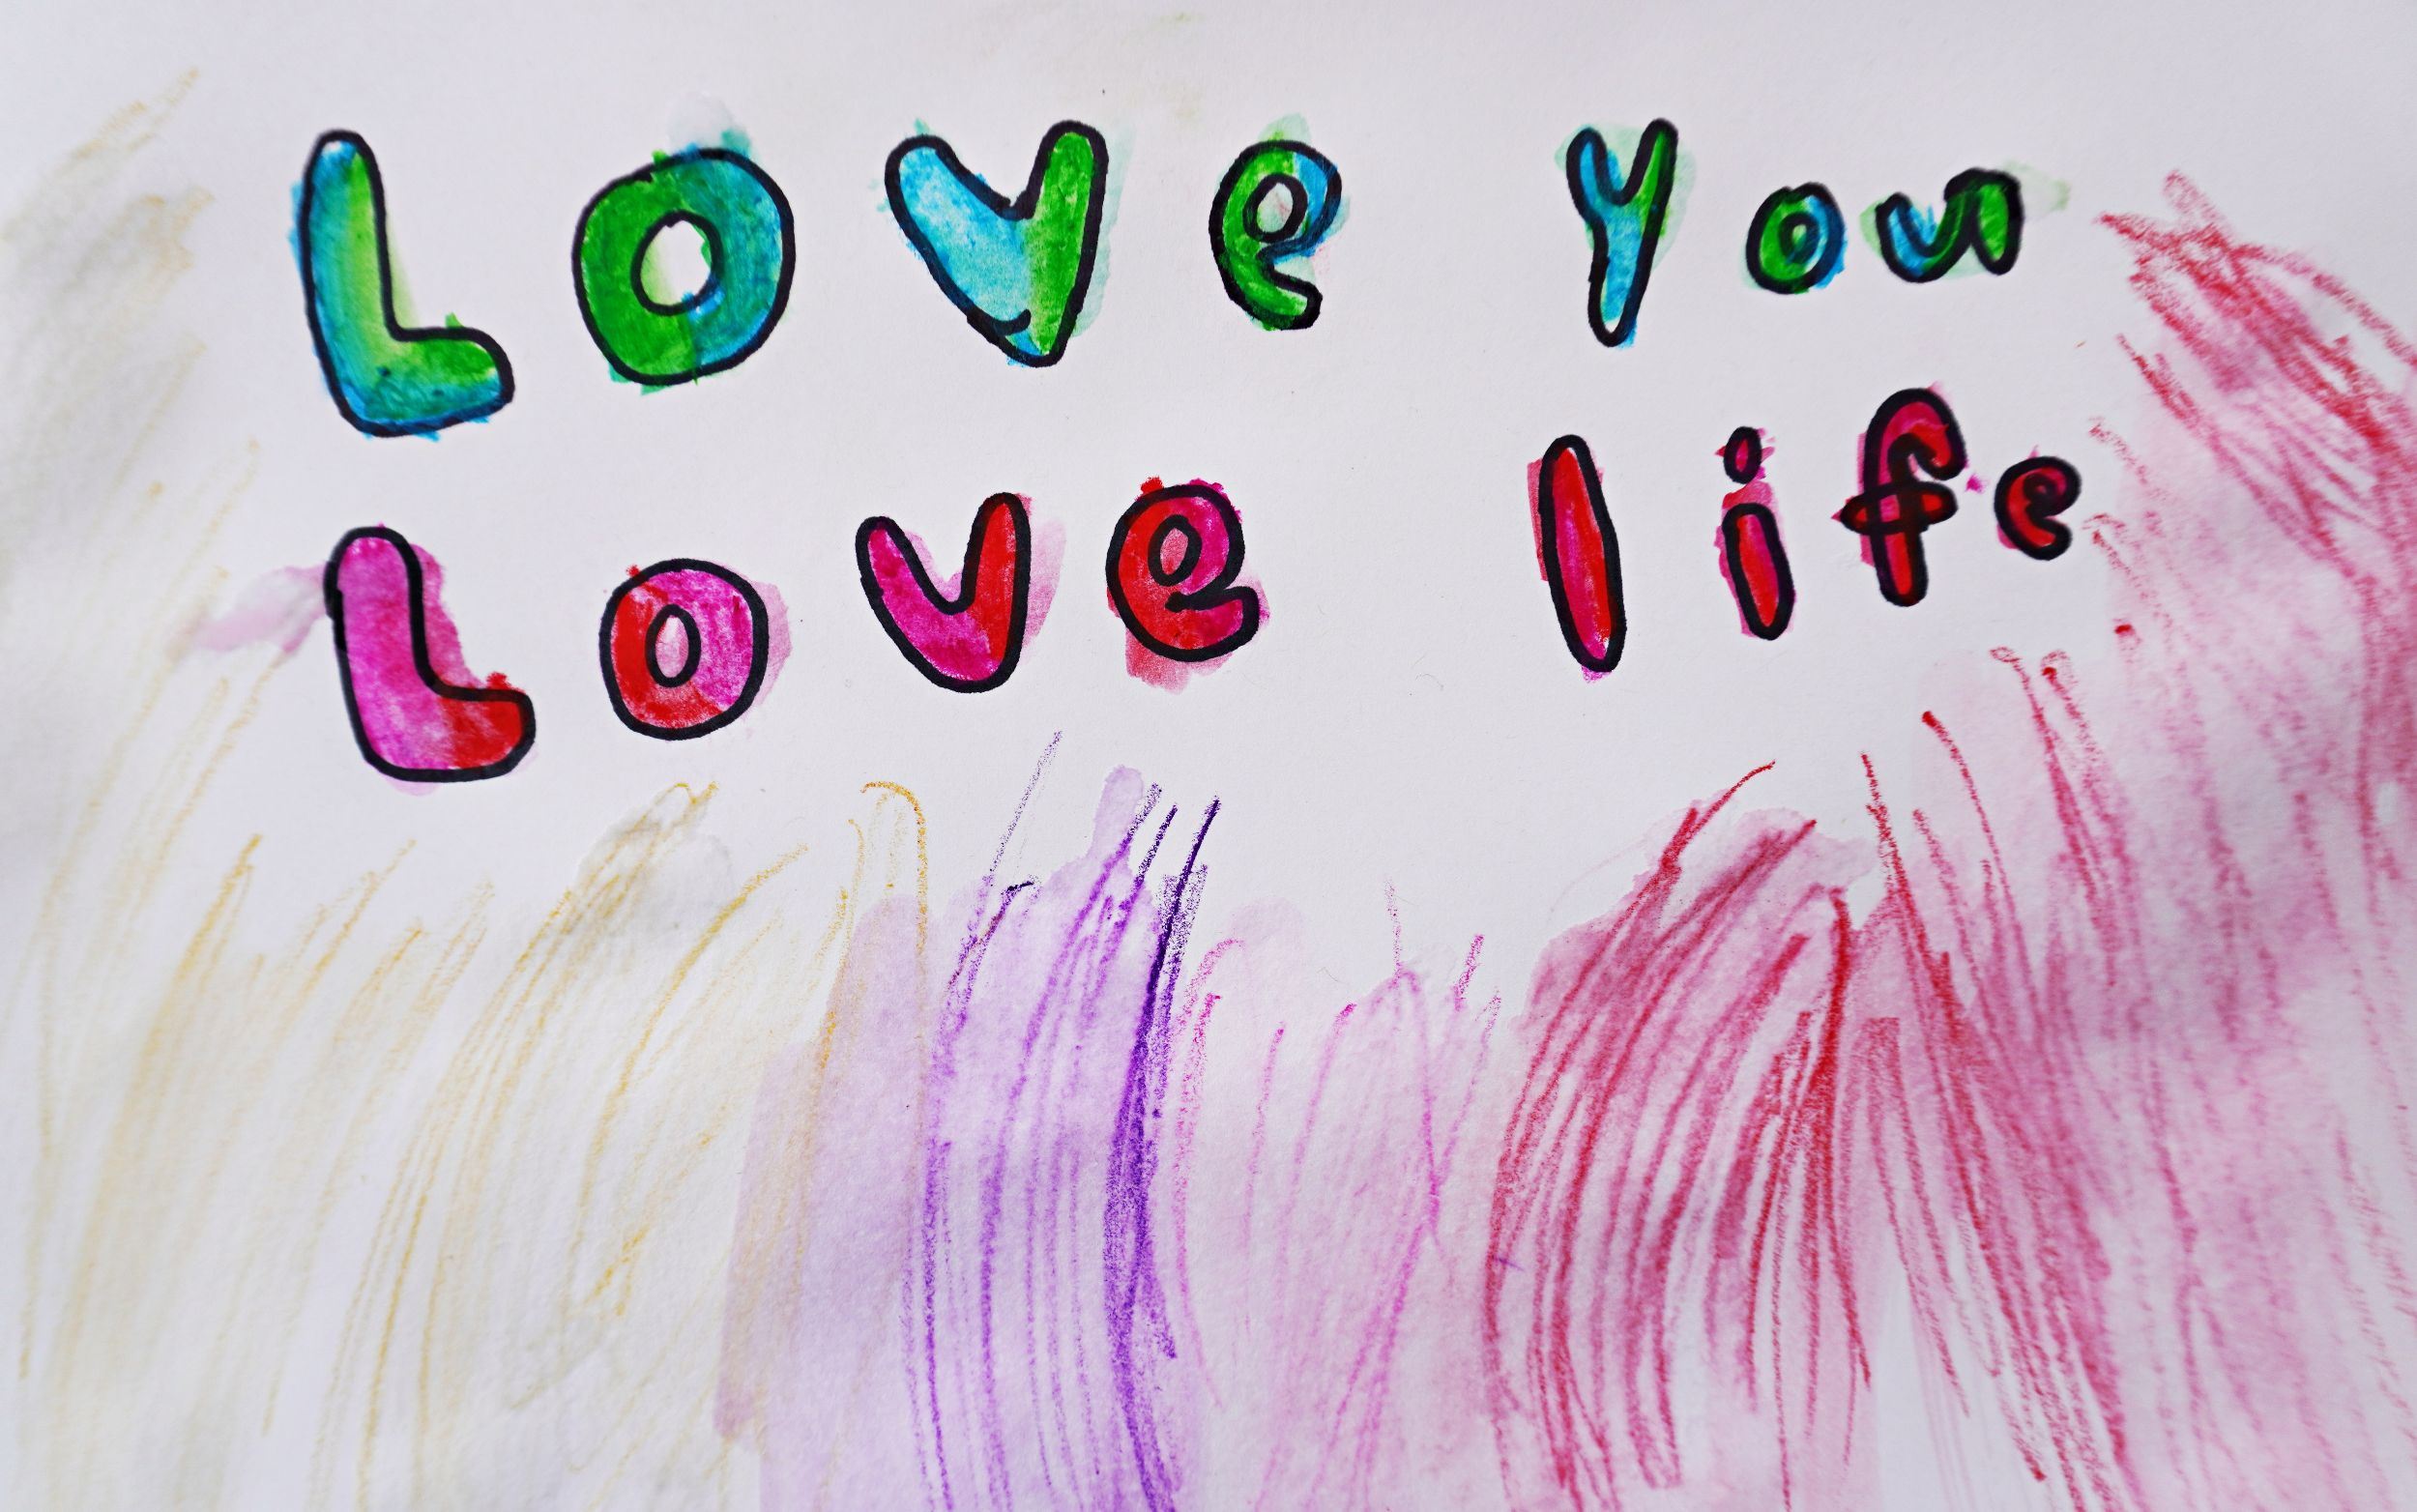 Love you
Love life